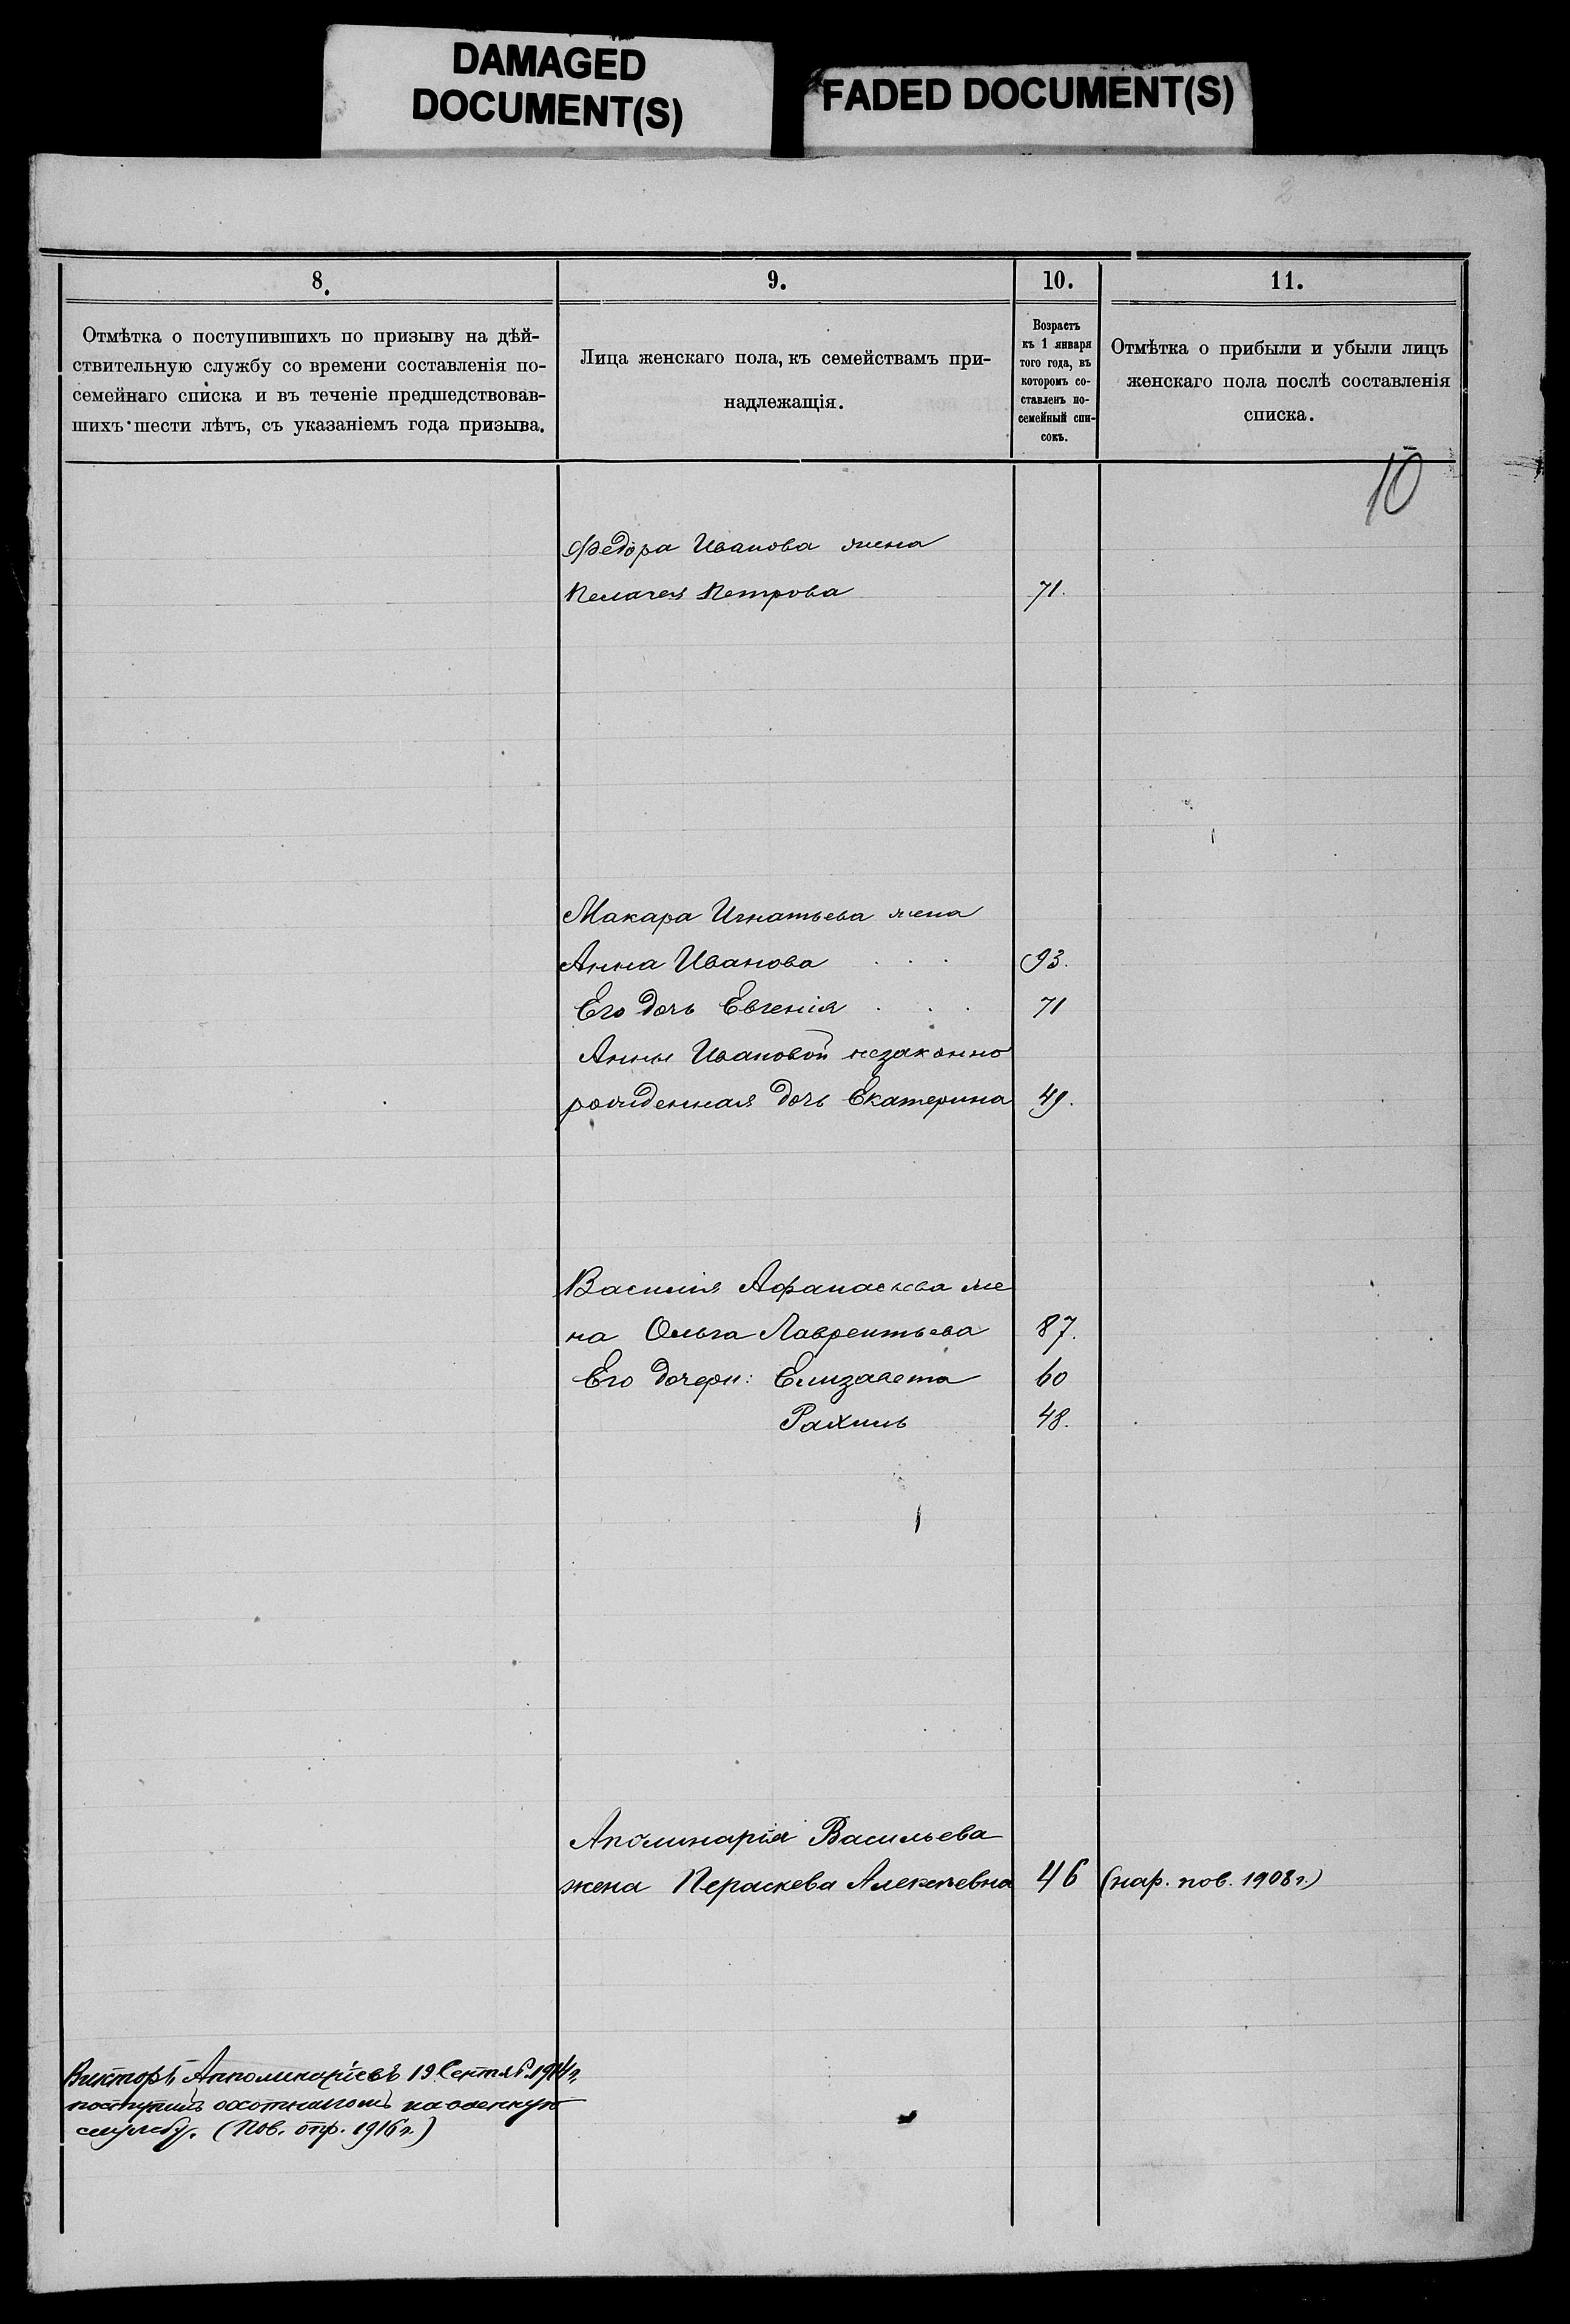 DAMAGED
DOCUMENT(S)
FADED DOCUMENT(S)
2
8.
9.
10.
11.
Отмѣтка о поступившихъ по призыву на дѣй-
ствительную службу со времени составленія по-
семейнаго списка и въ теченіе предшедствовав-
шихъ шести лѣтъ, съ указаніемъ года призыва.
Лица женскаго пола, къ семействамъ при-
надлежащія.
Возрастъ
къ 1 января
того года, въ
которомъ со-
ставленъ по-
семейный спи-
сокъ.
Отмѣтка о прибыли и убыли лицъ
женскаго пола послѣ составленія
списка.
10
Федора Иванова жена
Пелагея Петрова 71.
Макара Игнатьева жена
Анна Иванова . . . 93.
Его дочь Евгенія . . . 71
Анны Ивановой незаконно
рожденная дочь Екатерина 49.
Василія Афанасьева же
на Ольга Лаврентьева 87.
Его дочери: Елизавета 60
Рахиль 48.
Аполинарія Васильева
жена Пераскева Алексѣевна 46 (нар. пов. 1908 г.)
Викторъ Апполинаріевъ 19 Сентяб. 1914 г.
поступилъ охотникомъ на военную
службу. (Пов. отр. 1916 г.)